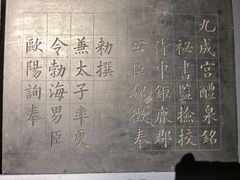 九成宮醴泉銘
秘書監撿挍
侍中鉅鹿郡
公臣魏徵奉
勑撰
兼太子率更
令勃海男臣
歐陽詢奉